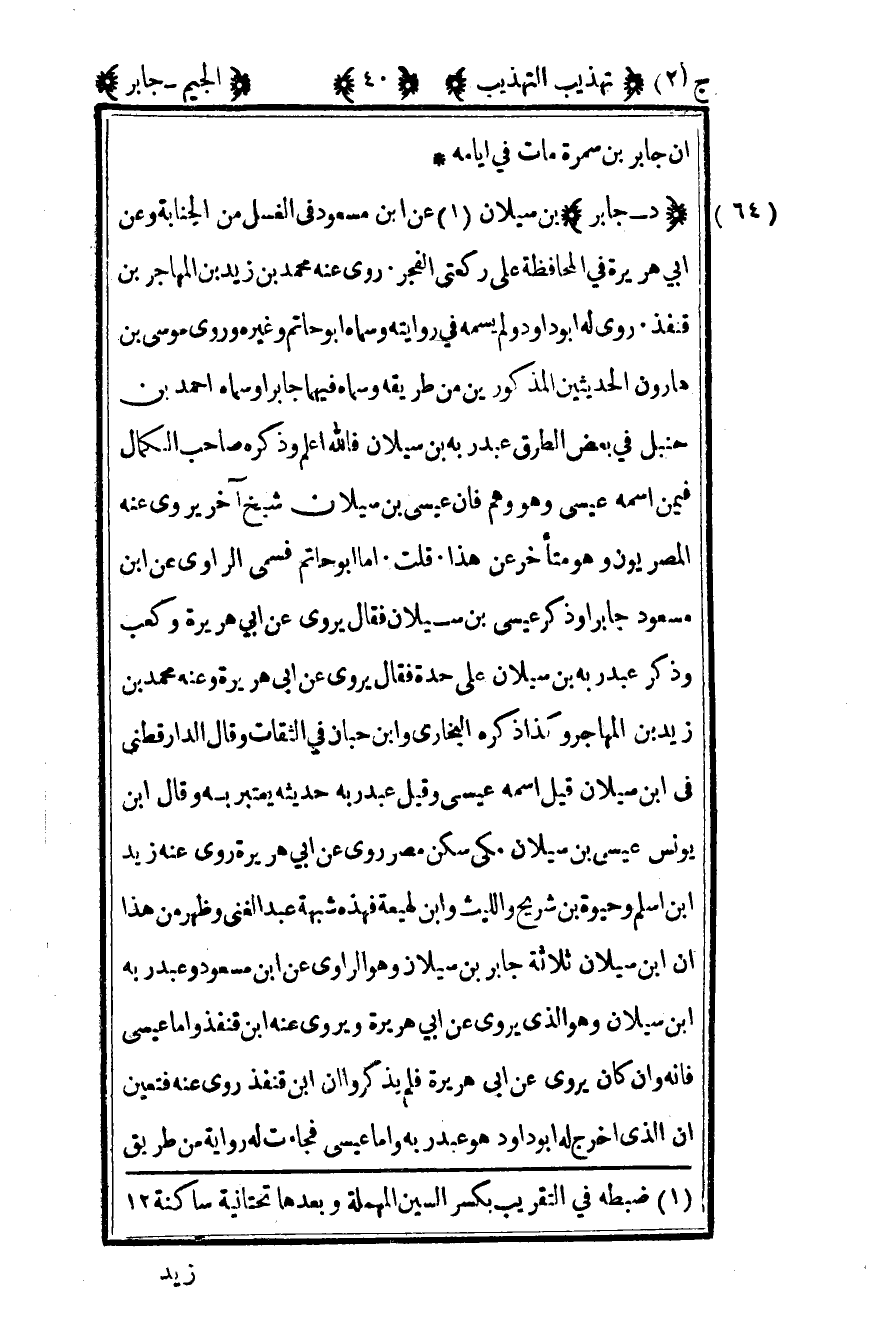 ج (٢) ﴿ تهذيب التهذيب ﴾ ﴿ ٤٠ ﴾ ﴿ الجيم - جابر ﴾
ان جابر بن سمرة مات في ايامه *
(٦٤) ﴿ د - جابر ﴾ بن سيلان (١) عن ابن مسعود فى الغسل من الجنابة وعن
ابي هريرة في المحافظة على ركعتى الفجر . روى عنه محمد بن زيد بن المهاجر بن
قنفذ . روى له ابو داود ولم يسمه في روايته وسماه ابو حاتم وغيره وروى موسى بن
هارون الحديثين المذكورين من طريقه وسماه فيهما جابرا وسماه احمد بن
حنبل في بعض الطرق عبدربه بن سيلان فالله اعلم وذكره صاحب الكمال
فيمن اسمه عيسى وهو وهم فان عيسى بن سيلان شيخ آخر يروى عنه
المصريون وهو متأخر عن هذا . قلت . اما ابو حاتم فسمى الراوى عن ابن
مسعود جابرا وذكر عيسى بن سيلان فقال يروى عن ابي هريرة وكعب
وذكر عبدربه بن سيلان على حدة فقال يروى عن ابى هريرة وعنه محمد بن
زيد بن المهاجر وكذا ذكره البخارى وابن حبان في الثقات وقال الدارقطنى
فى ابن سيلان قيل اسمه عيسى وقيل عبدربه حديثه يعتبر به وقال ابن
يونس عيسى بن سيلان مكى سكن مصر روى عن ابي هريرة روى عنه زيد
ابن اسلم وحيوة بن شريح والليث وابن لهيعة فهذه شبهة عبد الغنى وظهر من هذا
ان ابن سيلان ثلاثة جابر بن سيلان وهو الراوى عن ابن مسعود وعبدربه
ابن سيلان وهو الذى يروى عن ابي هريرة ويروى عنه ابن قنفذ واما عيسى
فانه وان كان يروى عن ابى هريرة فلم يذكروا ان ابن قنفذ روى عنه فتعين
ان الذى اخرج له ابو داود هو عبدربه واما عيسى فجاءت له رواية من طريق
(١) ضبطه في التقريب بكسر السين المهملة وبعدها تحتانية ساكنة ١٢
زيد